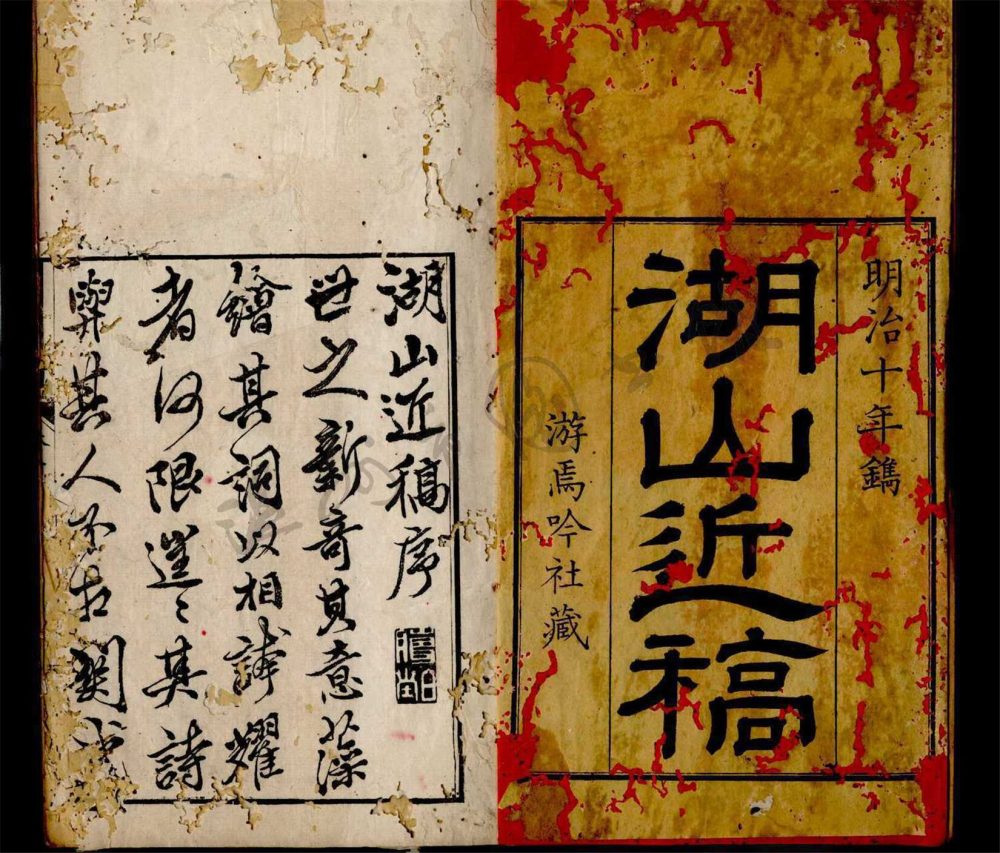 明治十年鐫
湖山近稿
游焉吟社藏
湖山近稿序
世之新奇其意藻
繪其詞以相誇耀
者何限遑〻其詩
與其人不相關